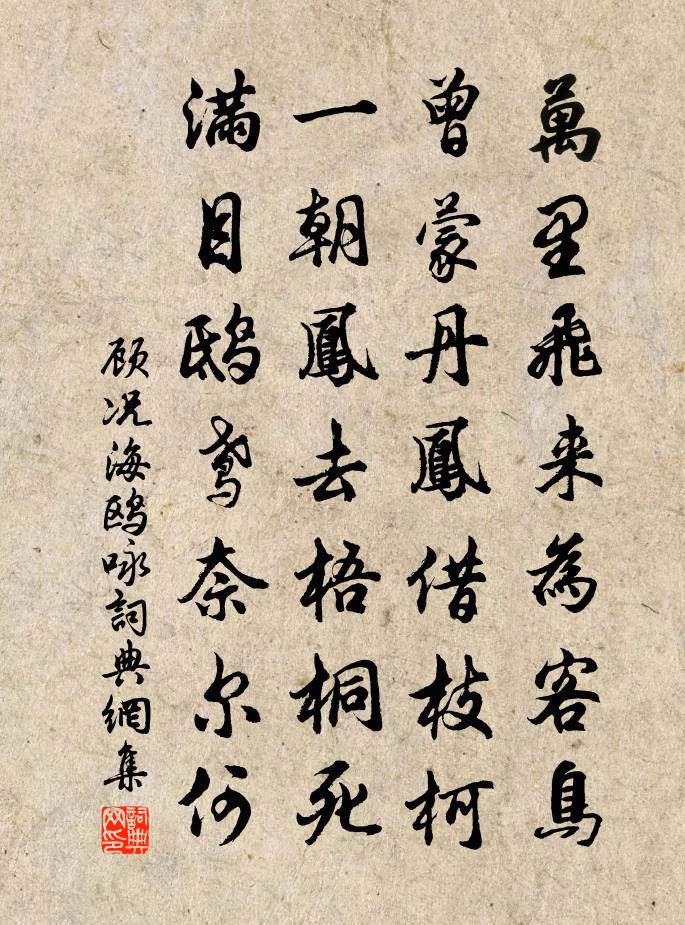 萬里飛来為客鳥
曾蒙丹鳳借枝柯
一朝鳳去梧桐死
滿目鴟鳶奈尔何
顾况海鸥咏詞典網集
詞典网印